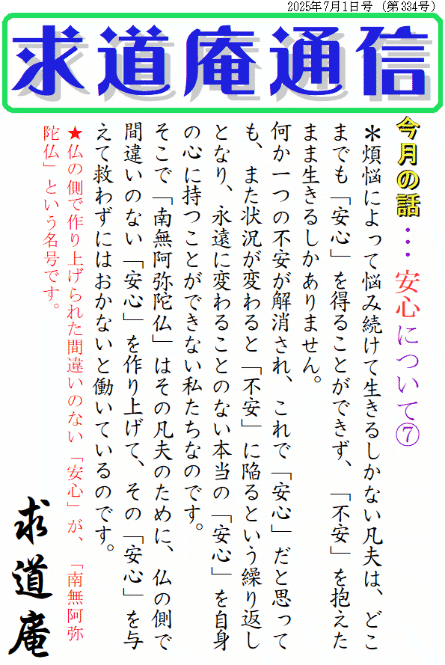 2025年7月1日号 (第334号)
求道庵通信
今月の話…安心について⑦
＊煩悩によって悩み続けて生きるしかない凡夫は、どこ
までも「安心」を得ることができず、「不安」を抱えた
まま生きるしかありません。
何か一つの不安が解消され、これで「安心」だと思って
も、また状況が変わると「不安」に陥るという繰り返し
となり、永遠に変わることのない本当の「安心」を自身
の心に持つことができない私たちなのです。
そこで「南無阿弥陀仏」はその凡夫のために、仏の側で
間違いのない「安心」を作り上げて、その「安心」を与
えて救わずにはおかないと働いているのです。
★仏の側で作り上げられた間違いのない「安心」が、「南無阿弥
陀仏」という名号です。
求道庵